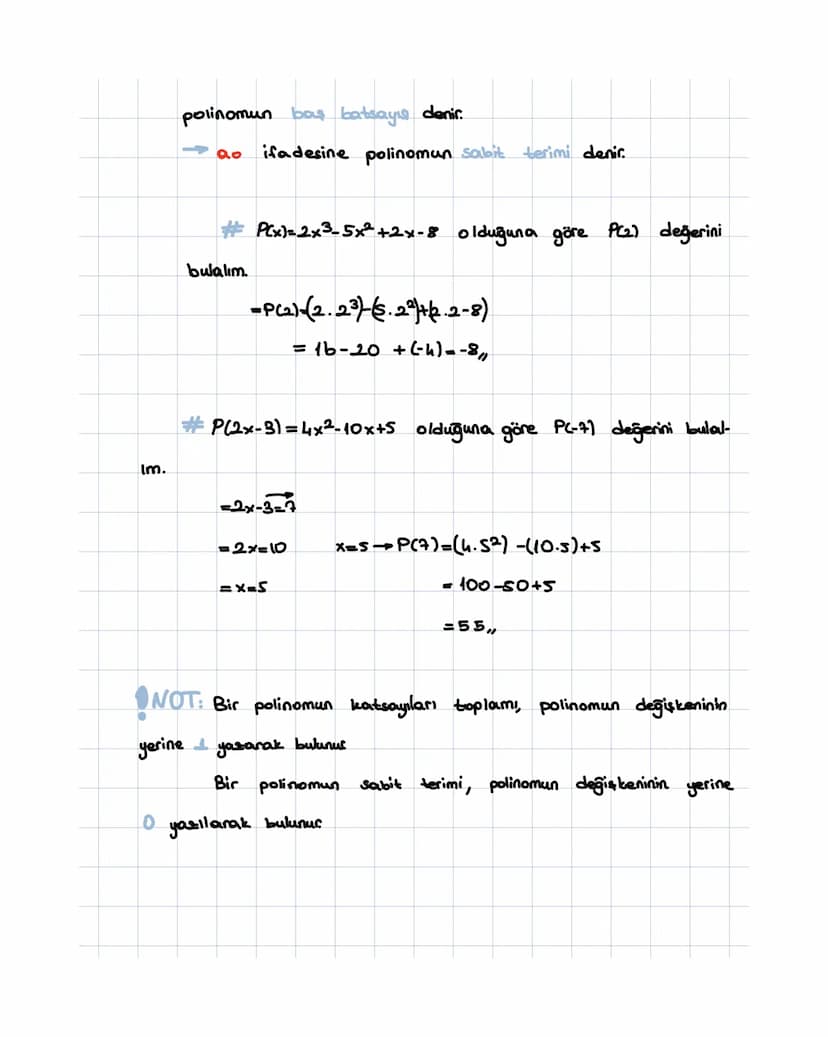 polinomun baş katsayısı denir.
→ a₀ ifadesine polinomun sabit terimi denir.
# P(x)=2x³-5x²+2x-8 olduğuna göre P(2) değerini
bulalım.
=P(2)=(2.2³)-(5.2²)+(2.2-8)
= 16-20 +(-4)=-8,,
# P(2x-3)=4x²-10x+5 olduğuna göre P(-7) değerini bulal-
ım.
=2x-3=7
=2x=10 x=5→P(7)=(4.5²)-(10.5)+5
=x=5 = 100-50+5
=55,,
! NOT: Bir polinomun katsayıları toplamı, polinomun değişkeninin
yerine 1 yazarak bulunur
Bir polinomun sabit terimi, polinomun değişkeninin yerine
0 yazılarak bulunur